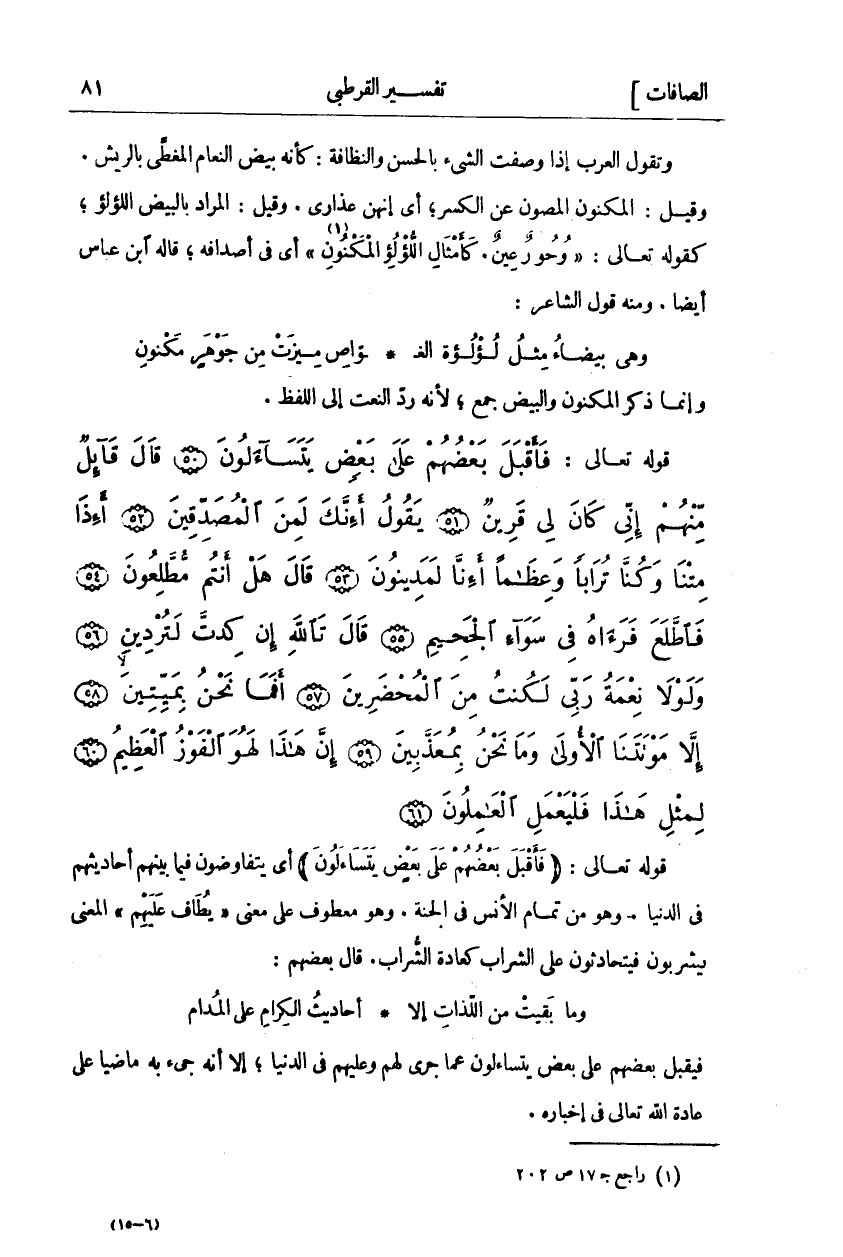 الصافات ] تفســير القرطبى ٨١
وتقول العرب إذا وصفت الشىء بالحسن والنظافة : كأنه بيض النعام المغطّى بالريش .
وقيــل : المكنون المصون عن الكسر؛ أى إنهن عذارى . وقيل : المراد بالبيض اللؤلؤ ؛
كقوله تعــالى : « وَحُورٌ عِينٌ . كَأَمْثَالِ اللُّؤْلُؤِ الْمَكْنُونِ » (١) أى فى أصدافه ؛ قاله ٱبن عباس
أيضا . ومنه قول الشاعر :
وهى بيضــاءُ مِثــلُ لُــؤْلُــؤة الغـ * ـوّاصِ مِــيزَتْ مِن جَوْهَرٍ مَكْنُونِ
وإنمــا ذكر المكنون والبيض جمع ؛ لأنه ردّ النعت إلى اللفظ .
قوله تعــالى : فَأَقْبَلَ بَعْضُهُمْ عَلَىٰ بَعْضٍ يَتَسَآءَلُونَ ﴿٥٠﴾ قَالَ قَآئِلٌ
مِّنْهُــمْ إِنِّى كَانَ لِى قَرِينٌ ﴿٥١﴾ يَقُولُ أَءِنَّكَ لَمِنَ ٱلْمُصَدِّقِينَ ﴿٥٢﴾ أَءِذَا
مِتْنَا وَكُنَّا تُرَابًا وَعِظَـٰمًا أَءِنَّا لَمَدِينُونَ ﴿٥٣﴾ قَالَ هَلْ أَنتُم مُّطَّلِعُونَ ﴿٥٤﴾
فَٱطَّلَعَ فَرَءَاهُ فِى سَوَآءِ ٱلْجَحِــيمِ ﴿٥٥﴾ قَالَ تَٱللَّهِ إِن كِدتَّ لَتُرْدِينِ ﴿٥٦﴾
وَلَوْلَا نِعْمَةُ رَبِّى لَكُنتُ مِنَ ٱلْمُحْضَرِينَ ﴿٥٧﴾ أَفَمَــا نَحْنُ بِمَيِّتِــينَ ﴿٥٨﴾
إِلَّا مَوْتَتَنَا ٱلْأُولَىٰ وَمَا نَحْنُ بِمُعَذَّبِينَ ﴿٥٩﴾ إِنَّ هَـٰذَا لَهُوَ ٱلْفَوْزُ ٱلْعَظِيمُ ﴿٦٠﴾
لِمِثْلِ هَـٰذَا فَلْيَعْمَلِ ٱلْعَـٰمِلُونَ ﴿٦١﴾
قوله تعــالى : ﴿ فَأَقْبَلَ بَعْضُهُمْ عَلَى بَعْضٍ يَتَسَاءَلُونَ ﴾ أى يتفاوضون فيما بينهم أحاديثهم
فى الدنيا . وهو من تمــام الأنس فى الجنة . وهو معطوف على معنى « يُطَافُ عَلَيْهِم » المعنى
يشربون فيتحادثون على الشراب كعادة الشُّراب. قال بعضهم :
وما بَقِيتْ من اللّذاتِ إلا * أحاديثُ الكِرامِ على المُدام
فيقبل بعضهم على بعض يتساءلون عما جرى لهم وعليهم فى الدنيا ؛ إلا أنه جىء به ماضيا على
عادة الله تعالى فى إخباره .
(١) راجع جـ ١٧ ص ٢٠٢
(٦-١٥)